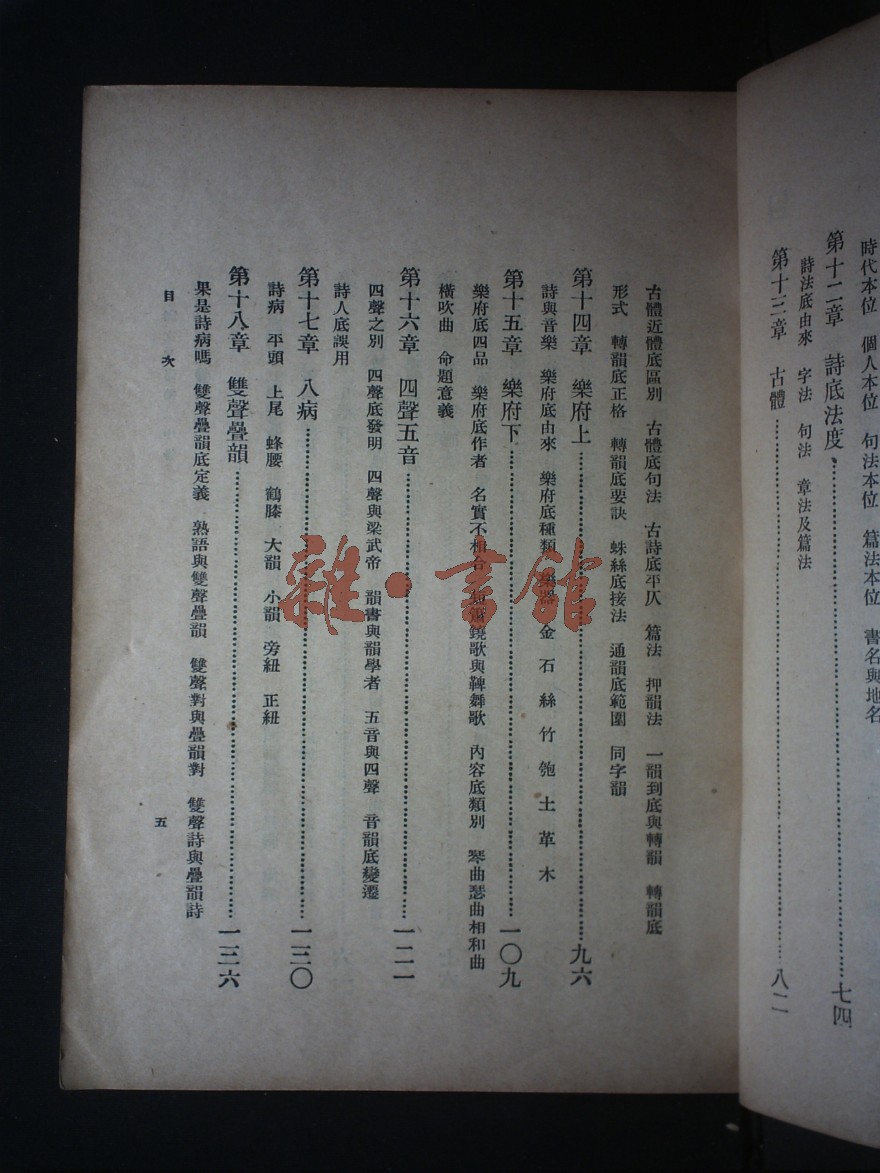 時代本位 個人本位 句法本位 篇法本位 書名與地名
第十二章 詩底法度……七四
詩法底由來 字法 句法 章法及篇法
第十三章 古體……八二
古體近體底區別 古體底句法 古詩底平仄 篇法 押韻法 一韻到底與轉韻 轉韻底
形式 轉韻底正格 轉韻底要訣 蛛絲底接法 通韻底範圍 同字韻
第十四章 樂府上……九六
詩與音樂 樂府底由來 樂府底種類 樂器 金 石 絲 竹 匏 土 革 木
第十五章 樂府下……一〇九
樂府底四品 樂府底作者 名實不相合 短簫鐃歌與鞞舞歌 內容底類別 琴曲瑟曲相和曲
橫吹曲 命題意義
第十六章 四聲五音……一二一
四聲之別 四聲底發明 四聲與梁武帝 韻書與韻學者 五音與四聲 音韻底變遷
詩人底誤用
第十七章 八病……一三〇
詩病 平頭 上尾 蜂腰 鶴膝 大韻 小韻 旁紐 正紐
第十八章 雙聲疊韻……一三六
果是詩病嗎 雙聲疊韻底定義 熟語與雙聲疊韻 雙聲對與疊韻對 雙聲詩與疊韻詩
目 次 五
雜·書館